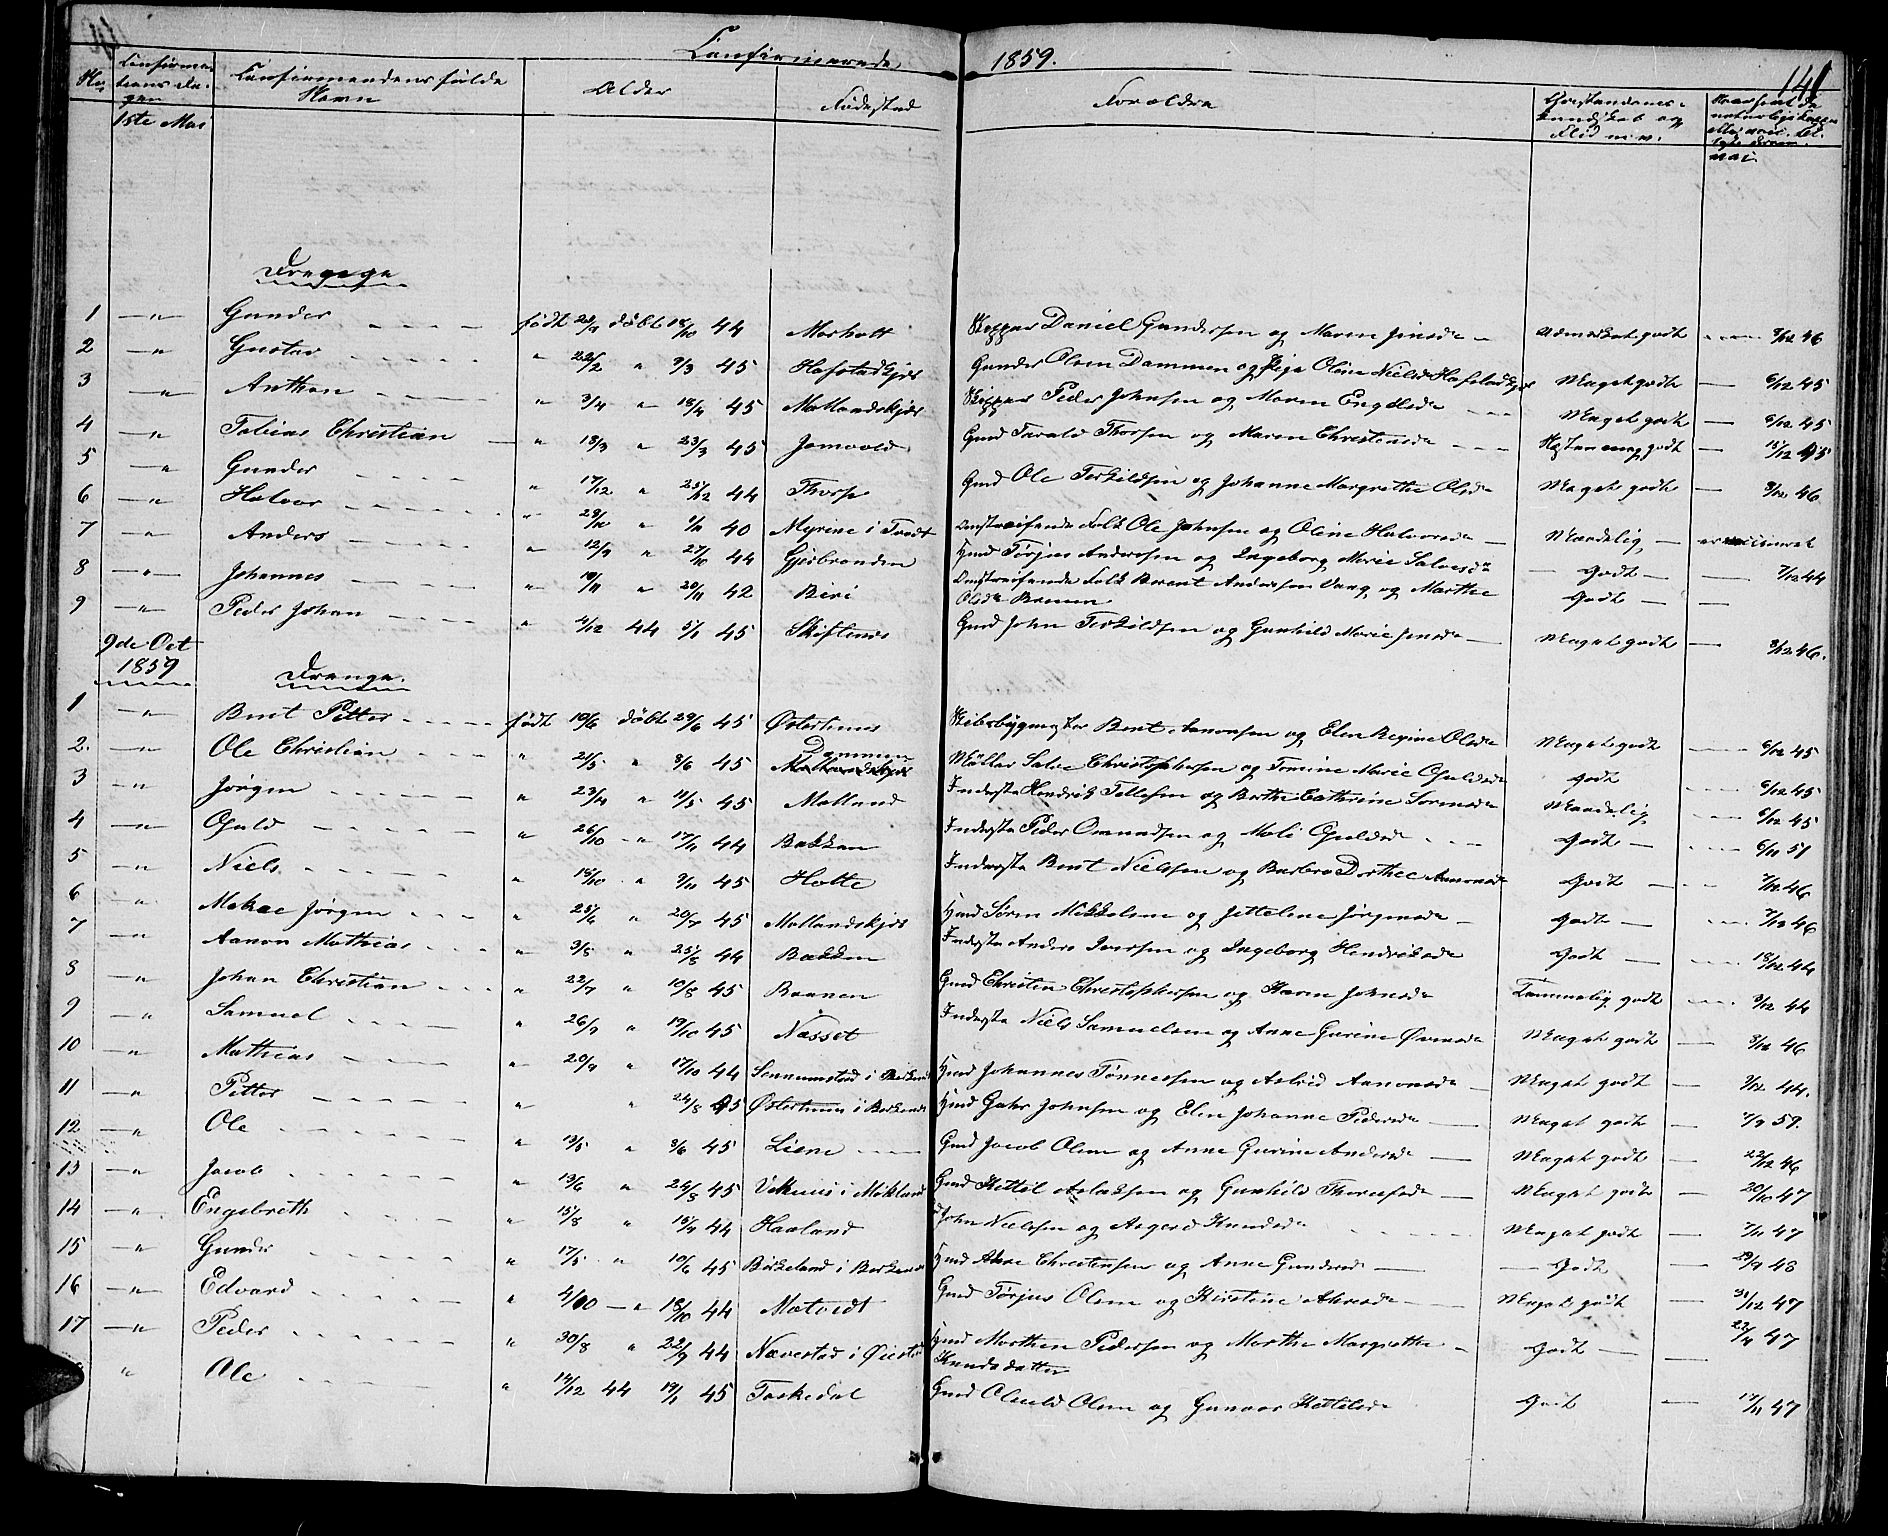 Confirmerede 1859. 141
No Confirmationsdagen Confirmandens fulde Navn Alder Fødested Forældre Forstandens- kundskab og Flid m.v. Naar
1ste Mai
Drenge
1 —"— Gunder født 28/9 døbt 18/10 44 Morholt Skipper Daniel Gundersen og Maren Jensdr Udmærket godt 8/12 46
2 —"— Gustav " 22/2 " 9/3 45 Hafstadkjær Gunder Olsen Dammen og Pige Oline Nielsdr Hafstadkjær Meget godt — 6/12 45
3 —"— Anthon " 3/4 " 18/4 45 Mollandskjær Skipper Peder Johnsen og Maren Engelsdr Meget godt — 6/12 45
4 —"— Tobias Christian " 18/3 " 23/3 45 Jomvold Gmd Tarald Thorsen og Maren Christensdr godt — 15/12 45
5 —"— Gunder " 17/12 " 25/12 44 Thorp Gmd Ole Terkildsen og Johanne Margrethe Olsdr Meget godt — 8/12 46
6 —"— Halvor " 29/10 " 40 Myrene i Tvedt Omstreifende Folk Ole Johnsen og Oline Halvorsdr Maadelig — er vaccineret
7 —"— Anders " 12/9 " 27/10 44 Gjeibranden Hmd Tørjus Andersen og Ingeborg Marie Salvesdr — Godt — 7/12 44
8 —"— Johannes " 19/11 " 20/11 42 Biri Omstreifende Folk Berent Andersen Vang og Marthe
Olsdr Bremen Godt —
9 —"— Peder Johan " 4/12 44 5/1 45 Skiftenes Gmd John Terkildsen og Gunhild Marie Jensdr Meget godt — 8/12 46.
9de Oct
1859
Drenge.
1 —"— Bent Petter født 19/6 døbt 29/6 45 Østerhuus Skibsbygmester Bent Aanonsen og Elen Regine Olsdr Meget godt 6/12 45
2. —"— Ole Christian " 21/5 " 8/6 45 Dammen Møller Salve Christophersen og Tomine Marie Gjuldsdr Godt 6/12 45
3 —"— Jørgen " 23/4 " 11/5 45 Molland Inderste Hendrik Tellefsen og Berthe Cathrine Sørensdr Maadelig 6/12 45
4 —"— Gjuld " 26/10 —" 17/11 44 Bakken Inderste Peder Osmundsen og Mali Gjuldsdr Godt — 6/11 51
5 —"— Niels " 18/10 " 9/11 45 Holte Inderste Bent Nielsen og Barbro Dorthee Aanonsdr Godt — 7/12 46
6 —"— Jørgen " 25/6 " 20/7 45 Mollandskjær Hmd Søren Mikkelsen og Jettelene Jørgensdr Godt — 7/12 46
7 —"— Aanon Mathias " 3/8 " 25/8 44 Bakken Inderste Anders Iversen og Ingeborg Hendriksdr Godt — 18/12 44
8 —"— Johan Christian " 22/7 " 10/8 45 Braanen Gmd Christen Christophersen og Karen Johnsdr Temmelig godt 3/12 44
9 —"— Samuel " 26/9 " 19/10 45 Næsset Inderste Niels Samuelsen og Anne Gurine Ormsdr Meget godt — 3/12 46
10 —"— Mathias " 20/9 " 17/10 44 Sennumstad i Birkenes Hmd Johannes Tønnesen og Astrid Aanonsdr — Meget godt — 7/12 44.
11 —"— Petter " " 24/8 45 Østerhuus i Berkenes Hmd Gahr Johnsen og Elen Johanne Pedersdr — Meget godt — 7/9 59.
12 —"— Ole " 13/5 " 8/6 45 Liene Gmd Jacob Olsen og Anne Gurine Andersdr — Meget godt — 22/12 46
13 —"— Jacob " 13/6 " 24/8 45 i Mykland Gmd Kettil Aslaksen og Gunhild Thoresdr — Meget godt — 20/10 47
14 —"— Engebreth " 15/8 " 15/9 44 Haaland John Nielsen og Asgerd Knudsdr Meget godt — 7/11 47
15 —"— Gunder " 17/5 " 10/6 45 Birkeland i Berkenes Hmd Christensen og Anne Gundersdr — Godt — 29/9 48
16 —"— Edvard " 4/10 —" 18/10 44 Matvedt Gmd Tørjus Olsen og Kirstine — Meget godt — 31/12 47
17 —"— Peder " 30/8 " 22/9 44 Nævestad i Øiestad Hmd Morthen Pedersen og Marthe Margrethe
Knudsdatter Godt — 22/11 47
" Ole " 14/12 44 19/1 45 Toskedal Gmd Oluld Olsen og Gunvor Kettilsdr Godt — 17/11 47